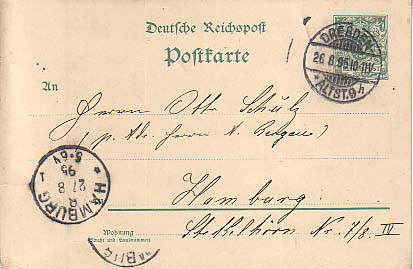 Deutsche Reichspost
Postkarte
DRESDEN
26 8 95 10-11V
* ALTST. 9 h
An
Herrn Otto Schulz
(p. Adr. Herrn N. Bergau)
HAMBURG 1
R
27 8
95
5-6V
Hamburg
Wohnung
(Straße und Hausnummer)
Stekelhörn Nr. 7/8. IV
HAMBURG